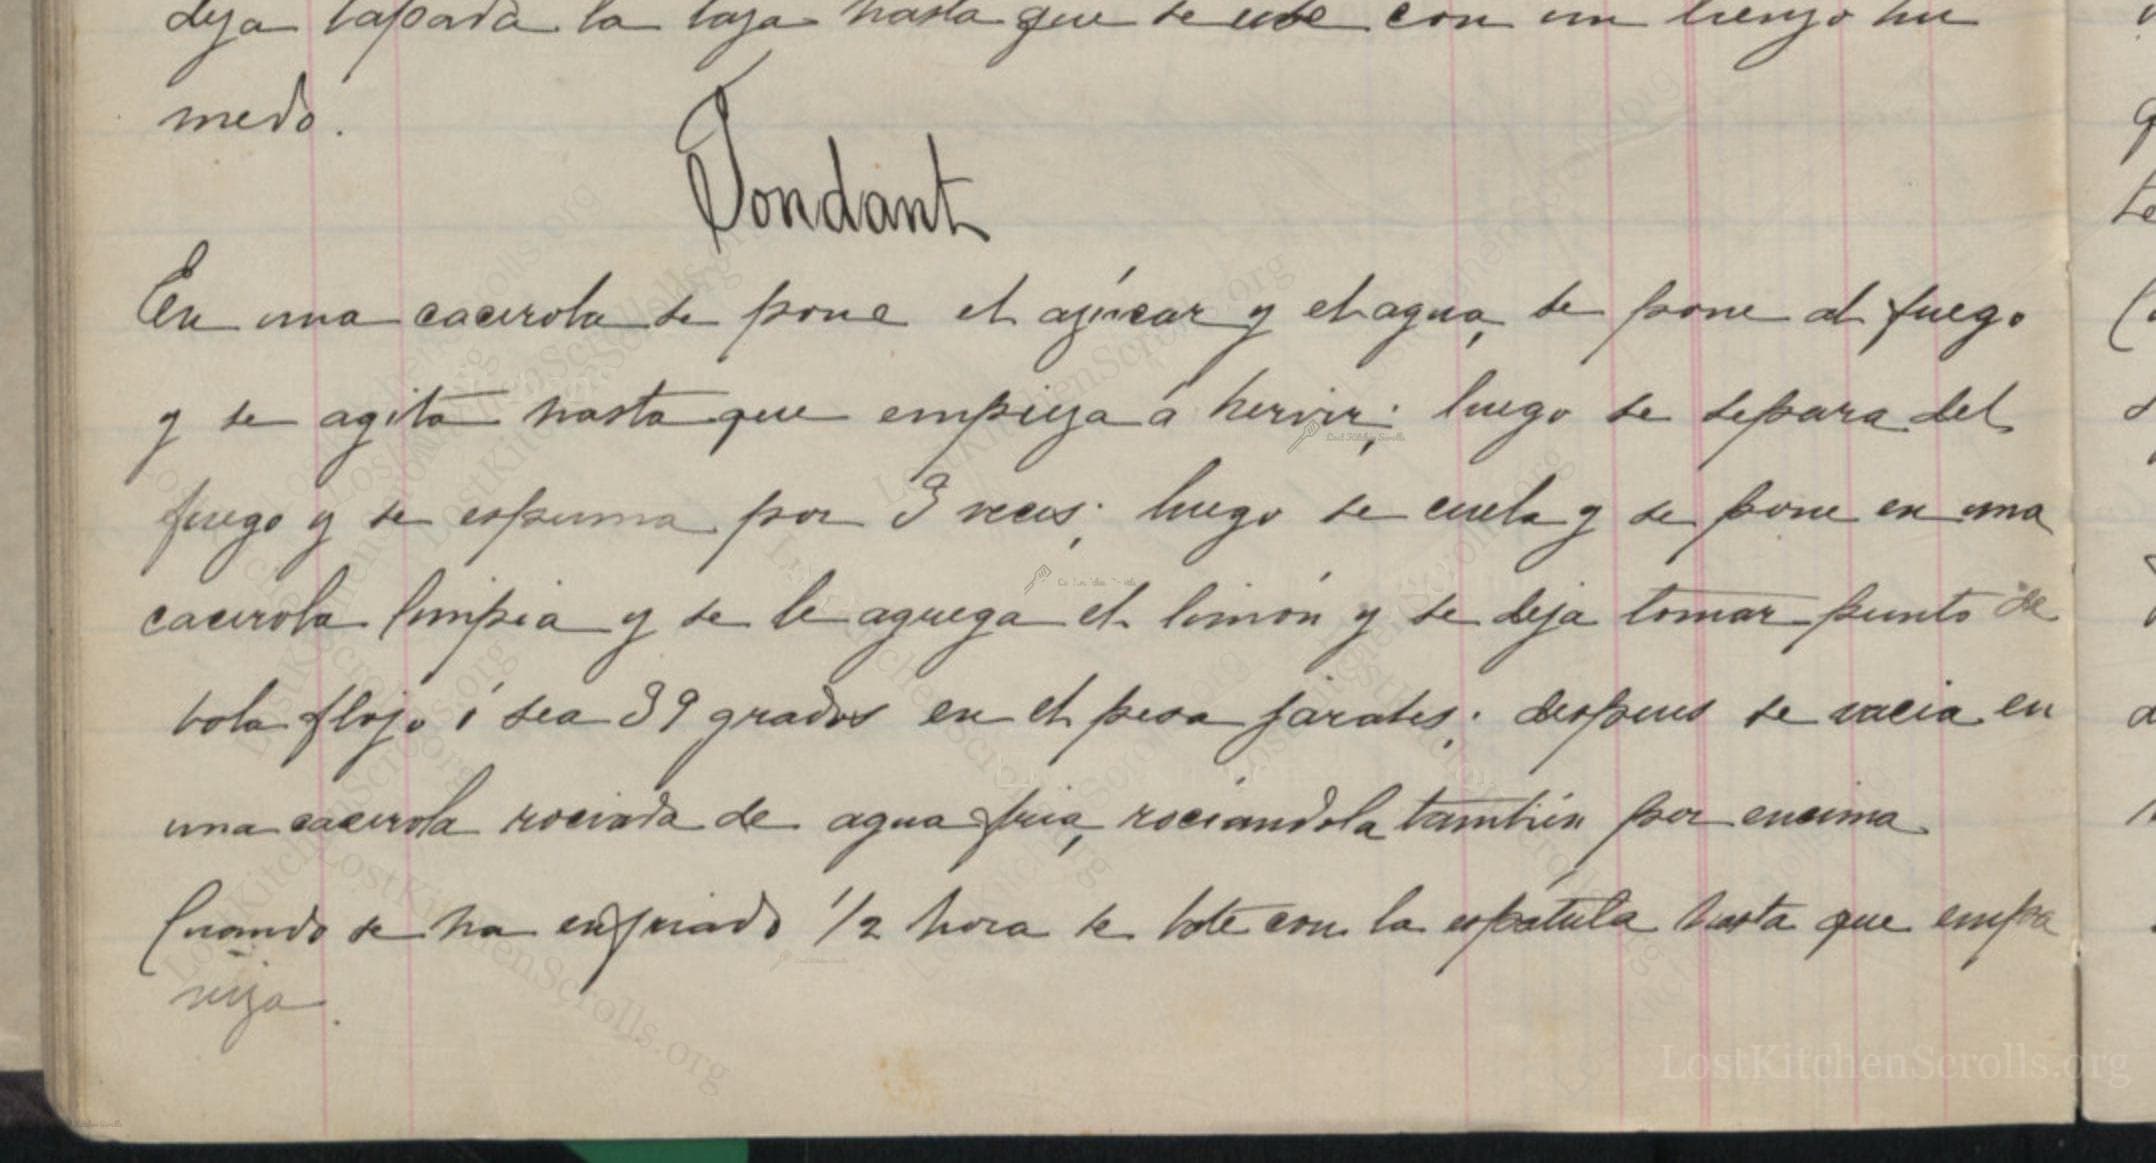 deja tapada la taza hasta que se use con un lienzo hu
medo.
Fondant
En una cacerola se pone el azúcar y el agua, se pone al fuego
y se agita hasta que empieza á hervir; luego se separa del
fuego y se espuma por 3 veces; luego se cuela y se pone en una
cacerola limpia y se le agrega el limón y se deja tomar punto de
bola flojo ó sea 39 grados en el pesa jarabes; despues se vacia en
una cacerola rociada de agua fria, rociandola tambien por encima
Cuando se ha enfriado 1/2 hora se bate con la espatula hasta que empa
niza.
LostKitchenScrolls.org